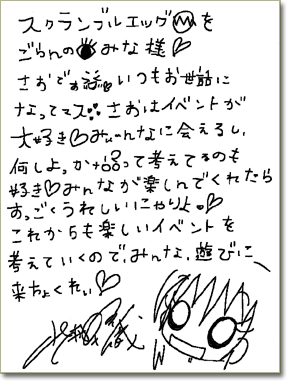 スクランブルエッグを
ごらんのみな様♡
さおでぁす いつもお世話に
なってマス さおはイベントが
大好き♡みぃーんなに会えるし、
何しよっかなって考えてるのも
好き♡みんなが楽しんでくれたら
すっごくうれしいにゃりよ
これからも楽しいイベントを
考えていくので、みんな、遊びに
来ちょくれぃ♡